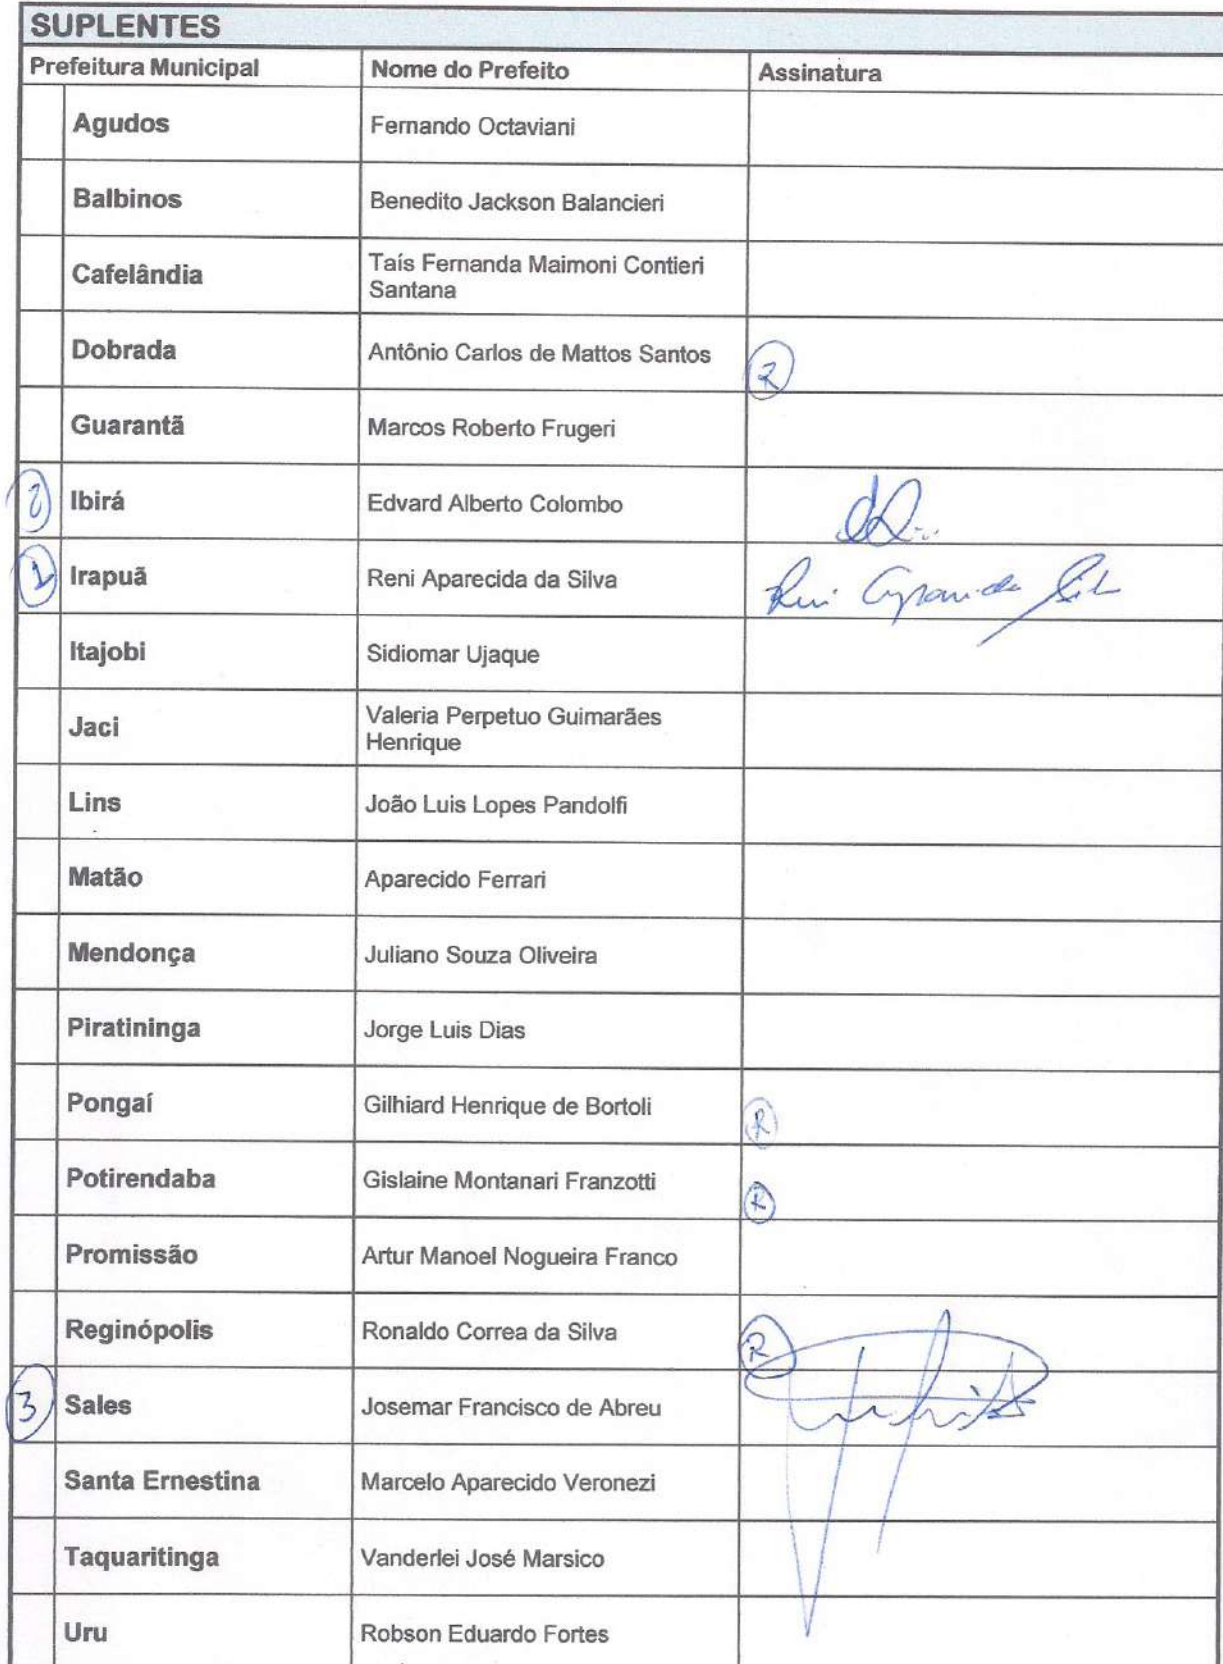 SUPLENTES
Prefeitura Municipal Nome do Prefeito Assinatura
Agudos Fernando Octaviani
Balbinos Benedito Jackson Balancieri
Cafelândia Taís Fernanda Maimoni Contieri
Santana
Dobrada Antônio Carlos de Mattos Santos R
Guarantã Marcos Roberto Frugeri
2 Ibirá Edvard Alberto Colombo
1 Irapuã Reni Aparecida da Silva Reni Aparecida Silva
Itajobi Sidiomar Ujaque
Jaci Valeria Perpetuo Guimarães
Henrique
Lins João Luis Lopes Pandolfi
Matão Aparecido Ferrari
Mendonça Juliano Souza Oliveira
Piratininga Jorge Luis Dias
Pongaí Gilhiard Henrique de Bortoli R
Potirendaba Gislaine Montanari Franzotti R
Promissão Artur Manoel Nogueira Franco
Reginópolis Ronaldo Correa da Silva R
3 Sales Josemar Francisco de Abreu
Santa Ernestina Marcelo Aparecido Veronezi
Taquaritinga Vanderlei José Marsico
Uru Robson Eduardo Fortes